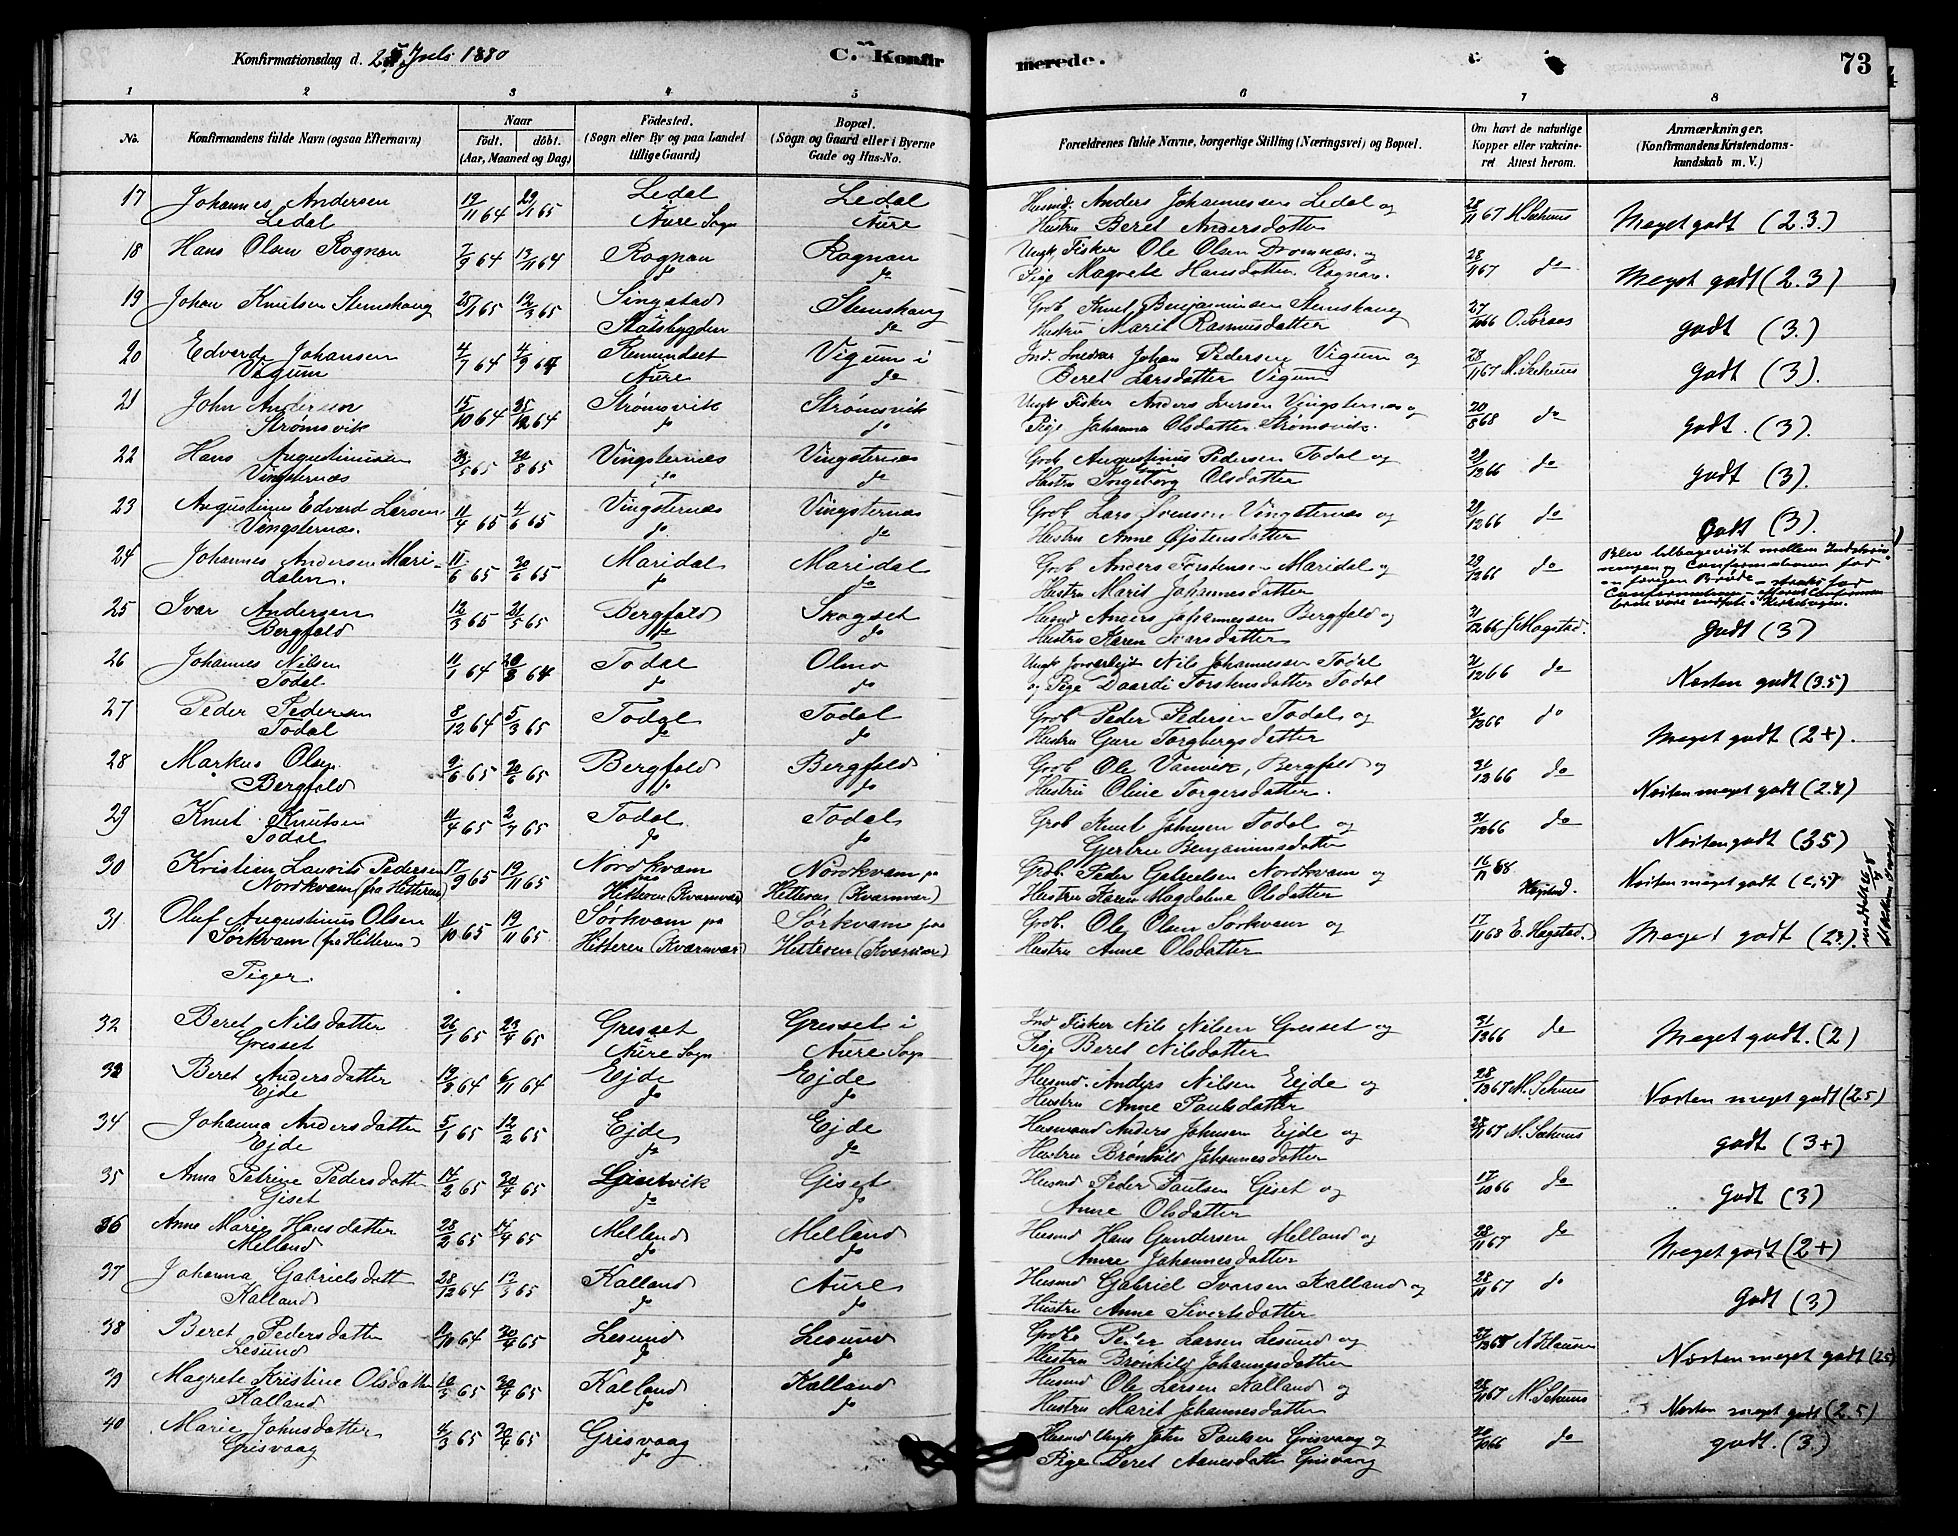 Konfirmationsdag d. 25 Juli 1880 C. Konfirmerede. 73
1 2 3 4 5 6 7 8
No. Konfirmandens fulde Navn (ogsaa Efternavn) Naar født. døbt. (Aar, Maaned og Dag) Födested. (Sogn eller By og paa Landet tillige Gaard) Bopæl. (Sogn og Gaard eller i Byerne Gade og Hus-No. Forældrenes fulde Navne, borgerlige Stilling (Næringsvei) og Bopæl. Om havt de naturlige Kopper eller vakcineret Attest herom. Anmærkninger. (Konfirmandens Kristendomskundskab m. V.)
17 Johannes Andersen 19/11 64 65 Ledal Ledal Husmd. Anders Johannessen Ledal og 28/11 67 M. Sæthrus Meget godt (2.3.)
Ledal Aure Sogn Aure Hustru Beret Andersdatter
18 Hans Olsen Rognan 7/9 64 13/11 64 Rognan Rognan Ungk. Fisker Ole Olsen Dromnæs og 28/11 67 do Meget godt (2.3)
do do Pige Magrete Hansdatter Rognan.
19 Johan Knutsen Stemshaug 25/1 65 12/3 65 Singstad Stemshaug Grdb. Knut Benjaminsen Stemshaug 27/10 66 O. Søraas godt (3.)
i Statsbygden do Hustru Marit Rasmusdatter
20 Edvard Johansen 4/7 64 4/9 64 Remundset Vigum i Ind. Snedker Johan Pedersen Vigum og 28/11 67 M. Sæthrus Godt (3).
Vigum Aure do Beret Larsdatter Vigum
21 John Andersen 15/10 64 25/12 64 Strømsvik Strømsvik Ungk Fisker Anders Iversen Vingsternæs og 20/8 68 do godt. (3).
Strømsvik do do Pige Johanna Olsdatter Strømsvik.
22 Hans Augustinussen 65 20/8 65 Vingsternæs Vingsternæs Grdb Augustinus Pedersen Todal og 29/12 66 do godt (3).
Vingsternæs do do Hustru Ingeborg Olsdatter
23 Augustinus Edvard Larsen 11/4 65 4/6 65 Vingsternæs Vingsternæs Grdb Lars Ivensen Vingsternæs og 29/12 66 do Godt (3).
Vingsternæs. do do Hustru Anne Øistensdatter
24 Johannes Andersen Mari- 11/6 65 20/6 65 Maridal Maridal Grdb Anders Torstensen Maridal og 29/12 66 do Blev tilbagevist mellem Indskriv-
dalen. do do Hustru Marit Johannesdatter ningen og Confirmationen for
25 Ivar Andersen 12/3 65 21/5 65 Bergfald Skogset Husmd Anders Johannessen Bergfald og 21/12 66 J. Hagstad. Godt (3)
Bergfald do do Hustru Karen Ivarsdatter
26 Johannes Nilsen 11/1 64 20/3 64 Todal Olmo Ungk Nils Johannessen Todal 21/12 66 do Næsten godt (3.5)
Todal do do og Pige Daardi Torstensdatter Todal
27 Peder Pedersen 8/12 64 5/3 65 Todal Todal Grdb Peder Pedersen Todal og 21/12 66 do Meget godt (2+).
Todal do do Hustru Gure Torgbergsdatter
28 Markus Olsen 9/6 65 20/6 65 Bergfald Bergfald Grdb Ole Vanvik, Bergfald og 21/12 66 do Næsten meget godt (2.4)
Bergfald do do Hustru Oline Torgersdatter.
29 Knut Knutsen 11/4 65 2/7 65 Todal Todal Grdb Knut Johnsen Todal og 21/12 66 do Næsten godt (3.5)
Todal do do Gjertru Benjaminsdatter
30 Kristian Lauvits Pedersen 17/9 65 19/11 65 Nordkvam Nordkvam paa Grdb. Peder Gabrielsen Nordkvam og 16/11 68 Næsten meget godt (2.5)
Nordkvam (fra Hitteren) paa Hitteren (Kvarnvær) Hitteren (Kvarnvær) Hustru Karen Magdalene Olsdatter Hagstad.
31 Oluf Augustinus Olsen 11/10 65 19/11 65 Sørkvam paa Sørkvam paa Grdb. Ole Olsen Sørkvam og 17/11 68 E. Hagstad. Meget godt (2.3).
Sørkvam (fra Hitteren) Hitteren (Kvarnvær) Hitteren (Kvarnvær) Hustru Anne Olsdatter
Piger.
32 Beret Nilsdatter 26/1 65 23/4 65 Gresset Gresset i Ind Fisker Nils Nilsen Gresset og 31/12 66 do Meget godt. (2)
Gresset i Aure Sogn Aure Sogn Pige Beret Nilsdatter
33 Beret Andersdatter 19/9 64 6/11 64 Ejde Ejde Husmd. Anders Nilsen Ejde og 28/12 67 M. Sæthrus Næsten meget godt (2.5)
Ejde do do Hustru Anne Paulsdatter
34 Johanna Andersdatter 5/1 65 12/2 65 Ejde Ejde Husmand Anders Johnsen Ejde og 28/11 67 M. Sæthrus godt (3+)
Ejde do do Hustru Brønhild Johannesdatter
35 Anna Petrine Pedersdatter 14/2 65 30/4 65 Giset Husmd Peder Paulsen Giset og 17/10 66 do Godt (3)
Giset do do Anne Olsdatter
36 Anne Marie Hansdatter 28/2 65 17/4 65 Melland Melland Husmd Hans Gundersen Melland og 28/11 67 do Meget godt (2+)
Melland do do Anne Johannesdatter
37 Johanna Gabrielsdatt 28/12 64 12/3 65 Kalland Aure Husmd Gabriel Ivarsen Kalland og 28/11 67 do Godt (3)
Kalland do do Hustru Anne Sivertsdatter
38 Beret Pedersdatter 11/10 64 30/4 65 Lesund Lesund Grdb. Peder Larsen Lesund og 27/12 68 N. Hansen Næsten meget godt (2.5)
Lesund do do Hustru Brønhild Johannesdatter
39 Magrete Kristine Olsdatter 10/3 65 30/4 65 Kalland Kalland Husmd Ole Larsen Kalland og 28/11 67 M. Sæthrus Næsten meget godt (2.5)
Kalland do do Hustru Marit Johannesdatter
40 Marie Johnsdatter 4/3 65 30/4 65 Grisvaag Husmd Ungk John Paulsen Grisvaag og 20/10 66 do godt. (3.)
Grisvaag do Pige Beret Aanesdatter Grisvaag